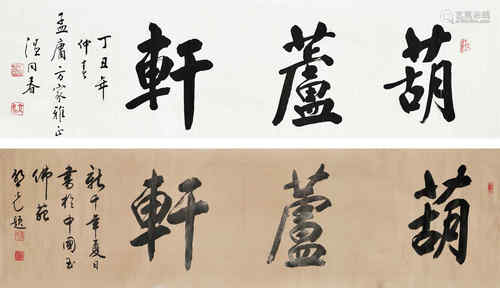 葫蘆軒
丁丑年
仲春
孟庸方家雅正
同春
葫蘆軒
新千年夏日
書於中國玉
佛苑
題